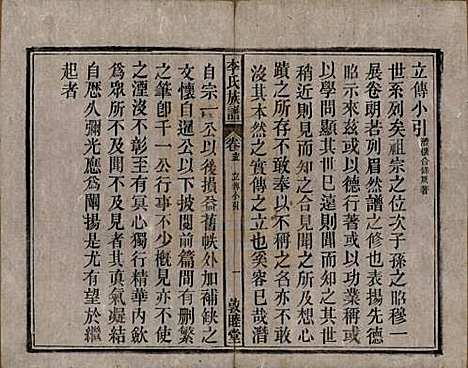 立傳小引
世系列矣祖宗之位次子孫之昭穆一
展卷朗若列眉然譜之修也表揚先德
昭示來茲或以德行著或以功業稱或
以學問具其世已遠則聞而知之其世
稍近則見而知之合見聞之所已及想心
蹟之所不敢奉以不稱之名亦不敢
沒其本然之實傳之立也奚容已哉潛
李氏族譜
卷
立傳小引
一
敦睦堂
自宗 公以後損益舊帙外加補缺之
文懷自暹公以下披閱前篇間有刪繁
之筆卽千一公行事不傳亦未可使
之湮沒不彰至有冥心獨行精華內斂
爲眾所不及見者其眞氣凝結
自歷久彌光應爲闡揚是尤有望於繼
起者